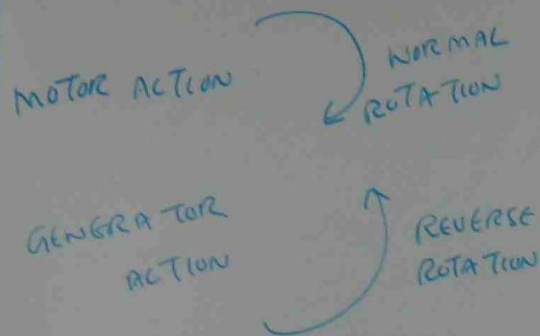 MOTOR ACTION
NORMAL
ROTATION
GENERATOR
ACTION
REVERSE
ROTATION